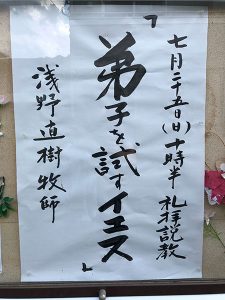 七月二十五(日)十時半 礼拝説教
「弟子を試すイエス」
浅野直樹牧師